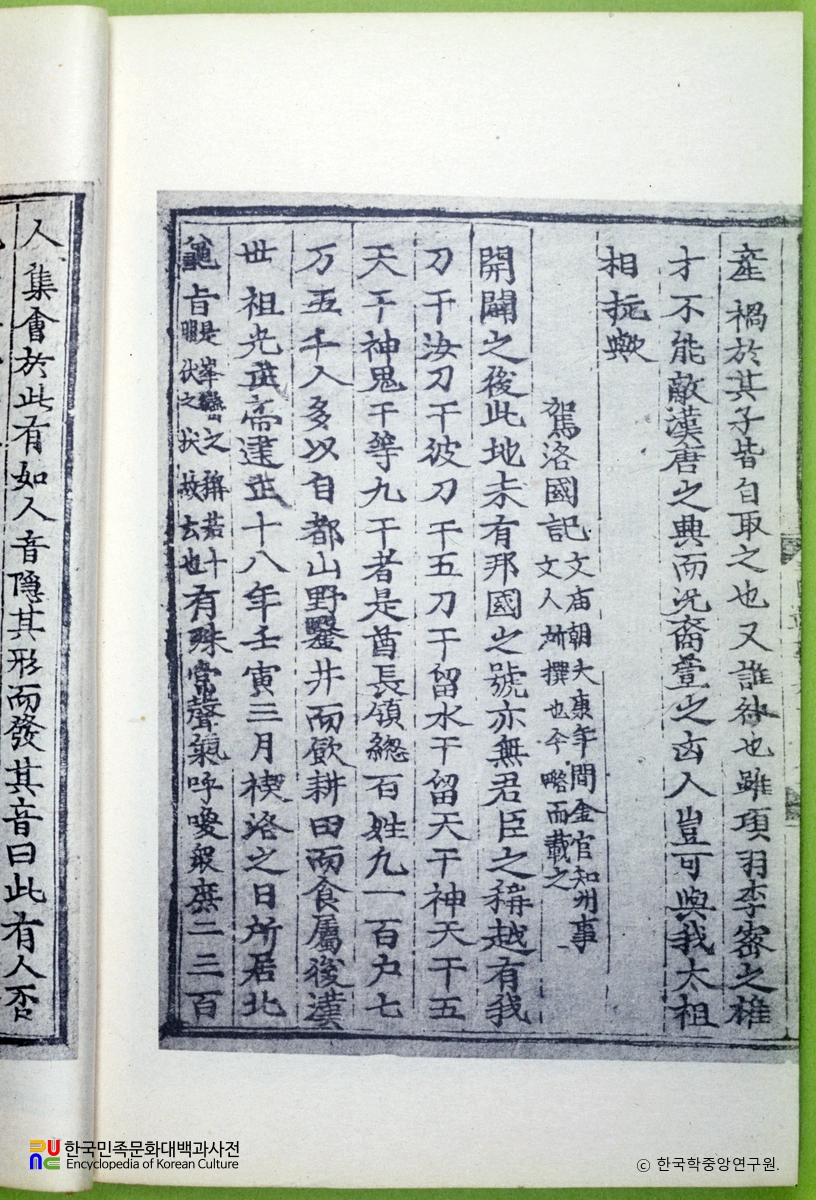 産禍於其子皆自取之也又誰咎也雖項羽李密之雄
才不能敵漢唐之興而况裔萱之㐫人豈可與我太祖
相抗歟
駕洛國記文庙朝大康年間金官知州事
文人所撰也今略而載之
開闢之後此地未有邦國之號亦無君臣之稱越有我
刀干汝刀干彼刀干五刀干留水干留天干神天干五
天干神鬼干等九干者是酋長領總百姓九一百户七
万五千人多以自都山野鑿井而飲耕田而食屬後漢
世祖光武帝建武十八年壬寅三月禊洛之日所居北
龜旨是峯巒之稱若十
朋伏之状故云也有殊常聲氣呼喚衆庶二三百
人集會於此有如人音隱其形而發其音曰此有人否
한국민족문화대백과사전
Encyclopedia of Korean Culture
© 한국학중앙연구원.